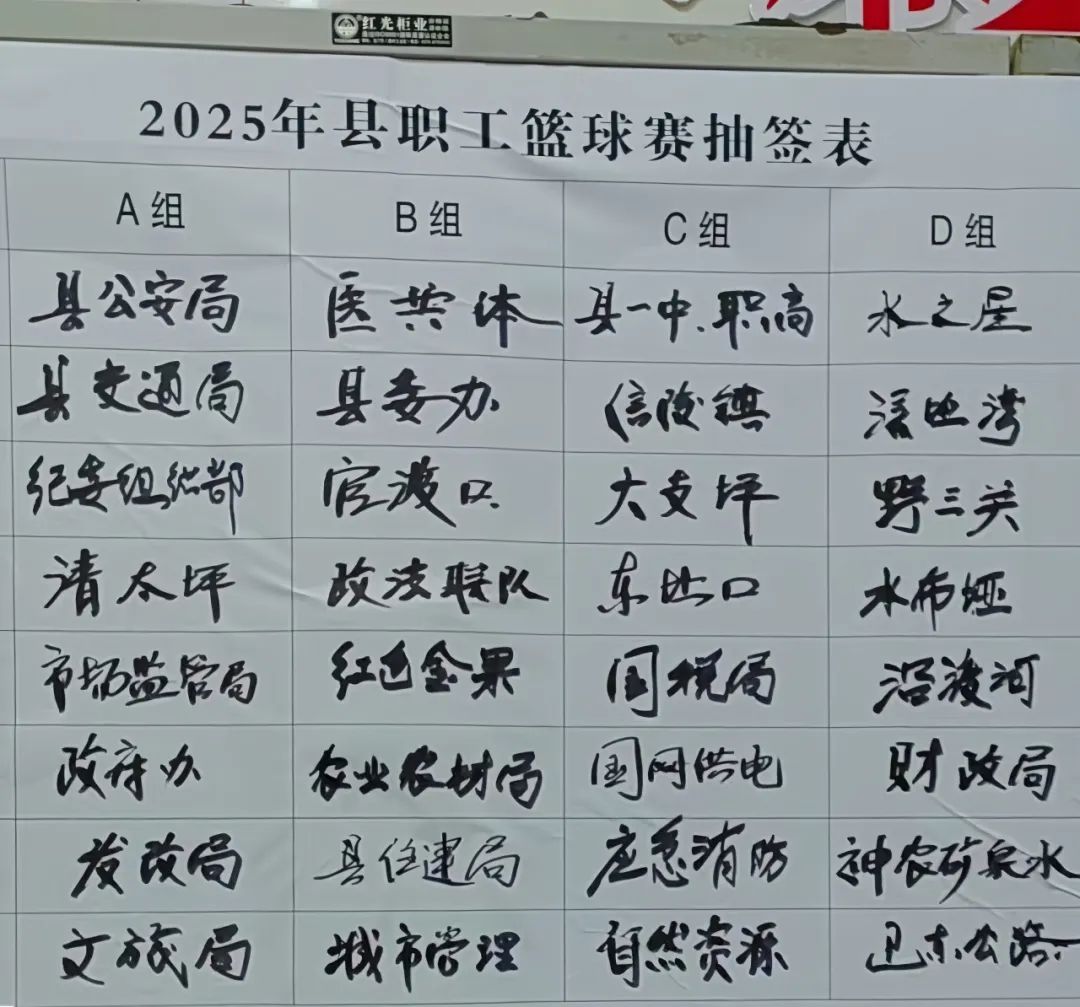 红光柜业
2025年县职工篮球赛抽签表
A组 B组 C组 D组
县公安局 医共体 县一中、职高 水之星
县交通局 县委办 信陵镇 溪丘湾
纪委组织部 官渡口 大支坪 野三关
清太坪 政法联队 东壤口 水布垭
市场监管局 红色金果 国税局 沿渡河
政府办 农业农村局 国网供电 财政局
发改局 县住建局 应急消防 神农矿泉水
文旅局 城市管理 自然资源 巴东公路